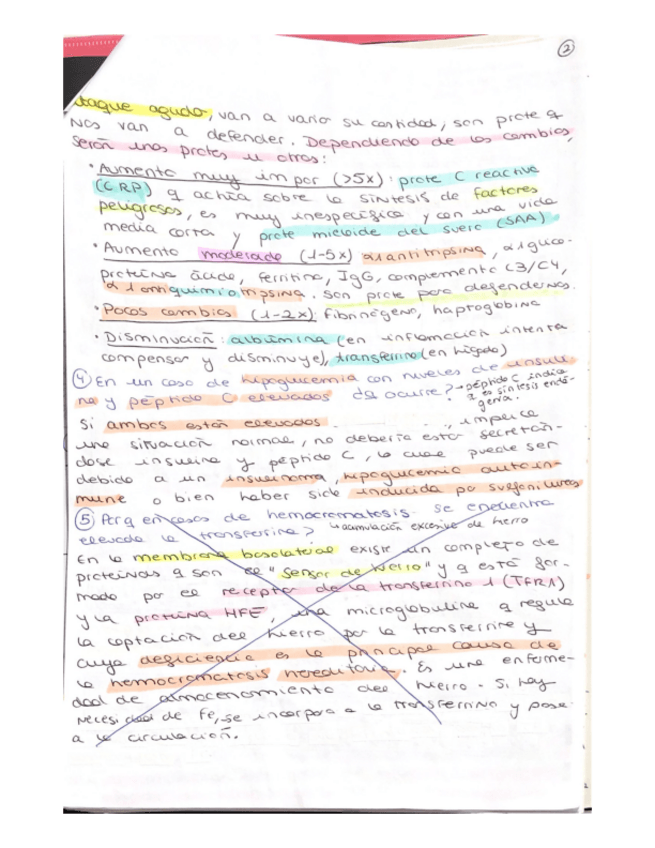 2
ataque agudo, van a variar su cantidad, son prote q
nos van a defender. Dependiendo de los cambios,
serán unas protes u otras:
· Aumento muy impor (>5x): prote C reactiva
(CRP) q actúa sobre la síntesis de factores
peligrosos, es muy inespecífica y con una vida
media corta y prote mieloide del suero (SAA)
· Aumento moderado (1-5x) α1antitripsina, α1gluco-
proteína ácida, ferritina, IgG, complemento C3/C4,
α1antiquimiotripsina. Son prote para defendernos.
· Pocos cambios (1-2x): fibrinógeno, haptoglobina
· Disminución: albúmina (en inflamación intenta
compensar y disminuye), transferrina (en hígado)
4 En un caso de hipoglucemia con niveles de insuli-
na y péptido C elevados ¿q ocurre? → péptido C indica
q es síntesis endó-
gena.
Si ambos están elevados , implica
una situación normal, no debería estar secretán-
dose insulina y péptido C, lo cual puede ser
debido a un insulinoma, hipoglucemia autoin-
mune o bien haber sido inducida por sulfonilureas
5 Porq en casos de hemocromatosis se encuentra
elevada la transferrina? ↳ acumulación excesiva de hierro
En la membrana basolateral existe un complejo de
proteínas q son el "sensor de hierro" y q está for-
mado por el receptor de la transferrina 1 (TFR1)
y la proteína HFE, una microglobulina q regula
la captación del hierro por la transferrina y
cuya deficiencia es la principal causa de
la hemocromatosis hereditaria. Es una enferme-
dad de almacenamiento del hierro. Si hay
necesidad de Fe, se incorpora a la transferrina y pasa
a la circulación.